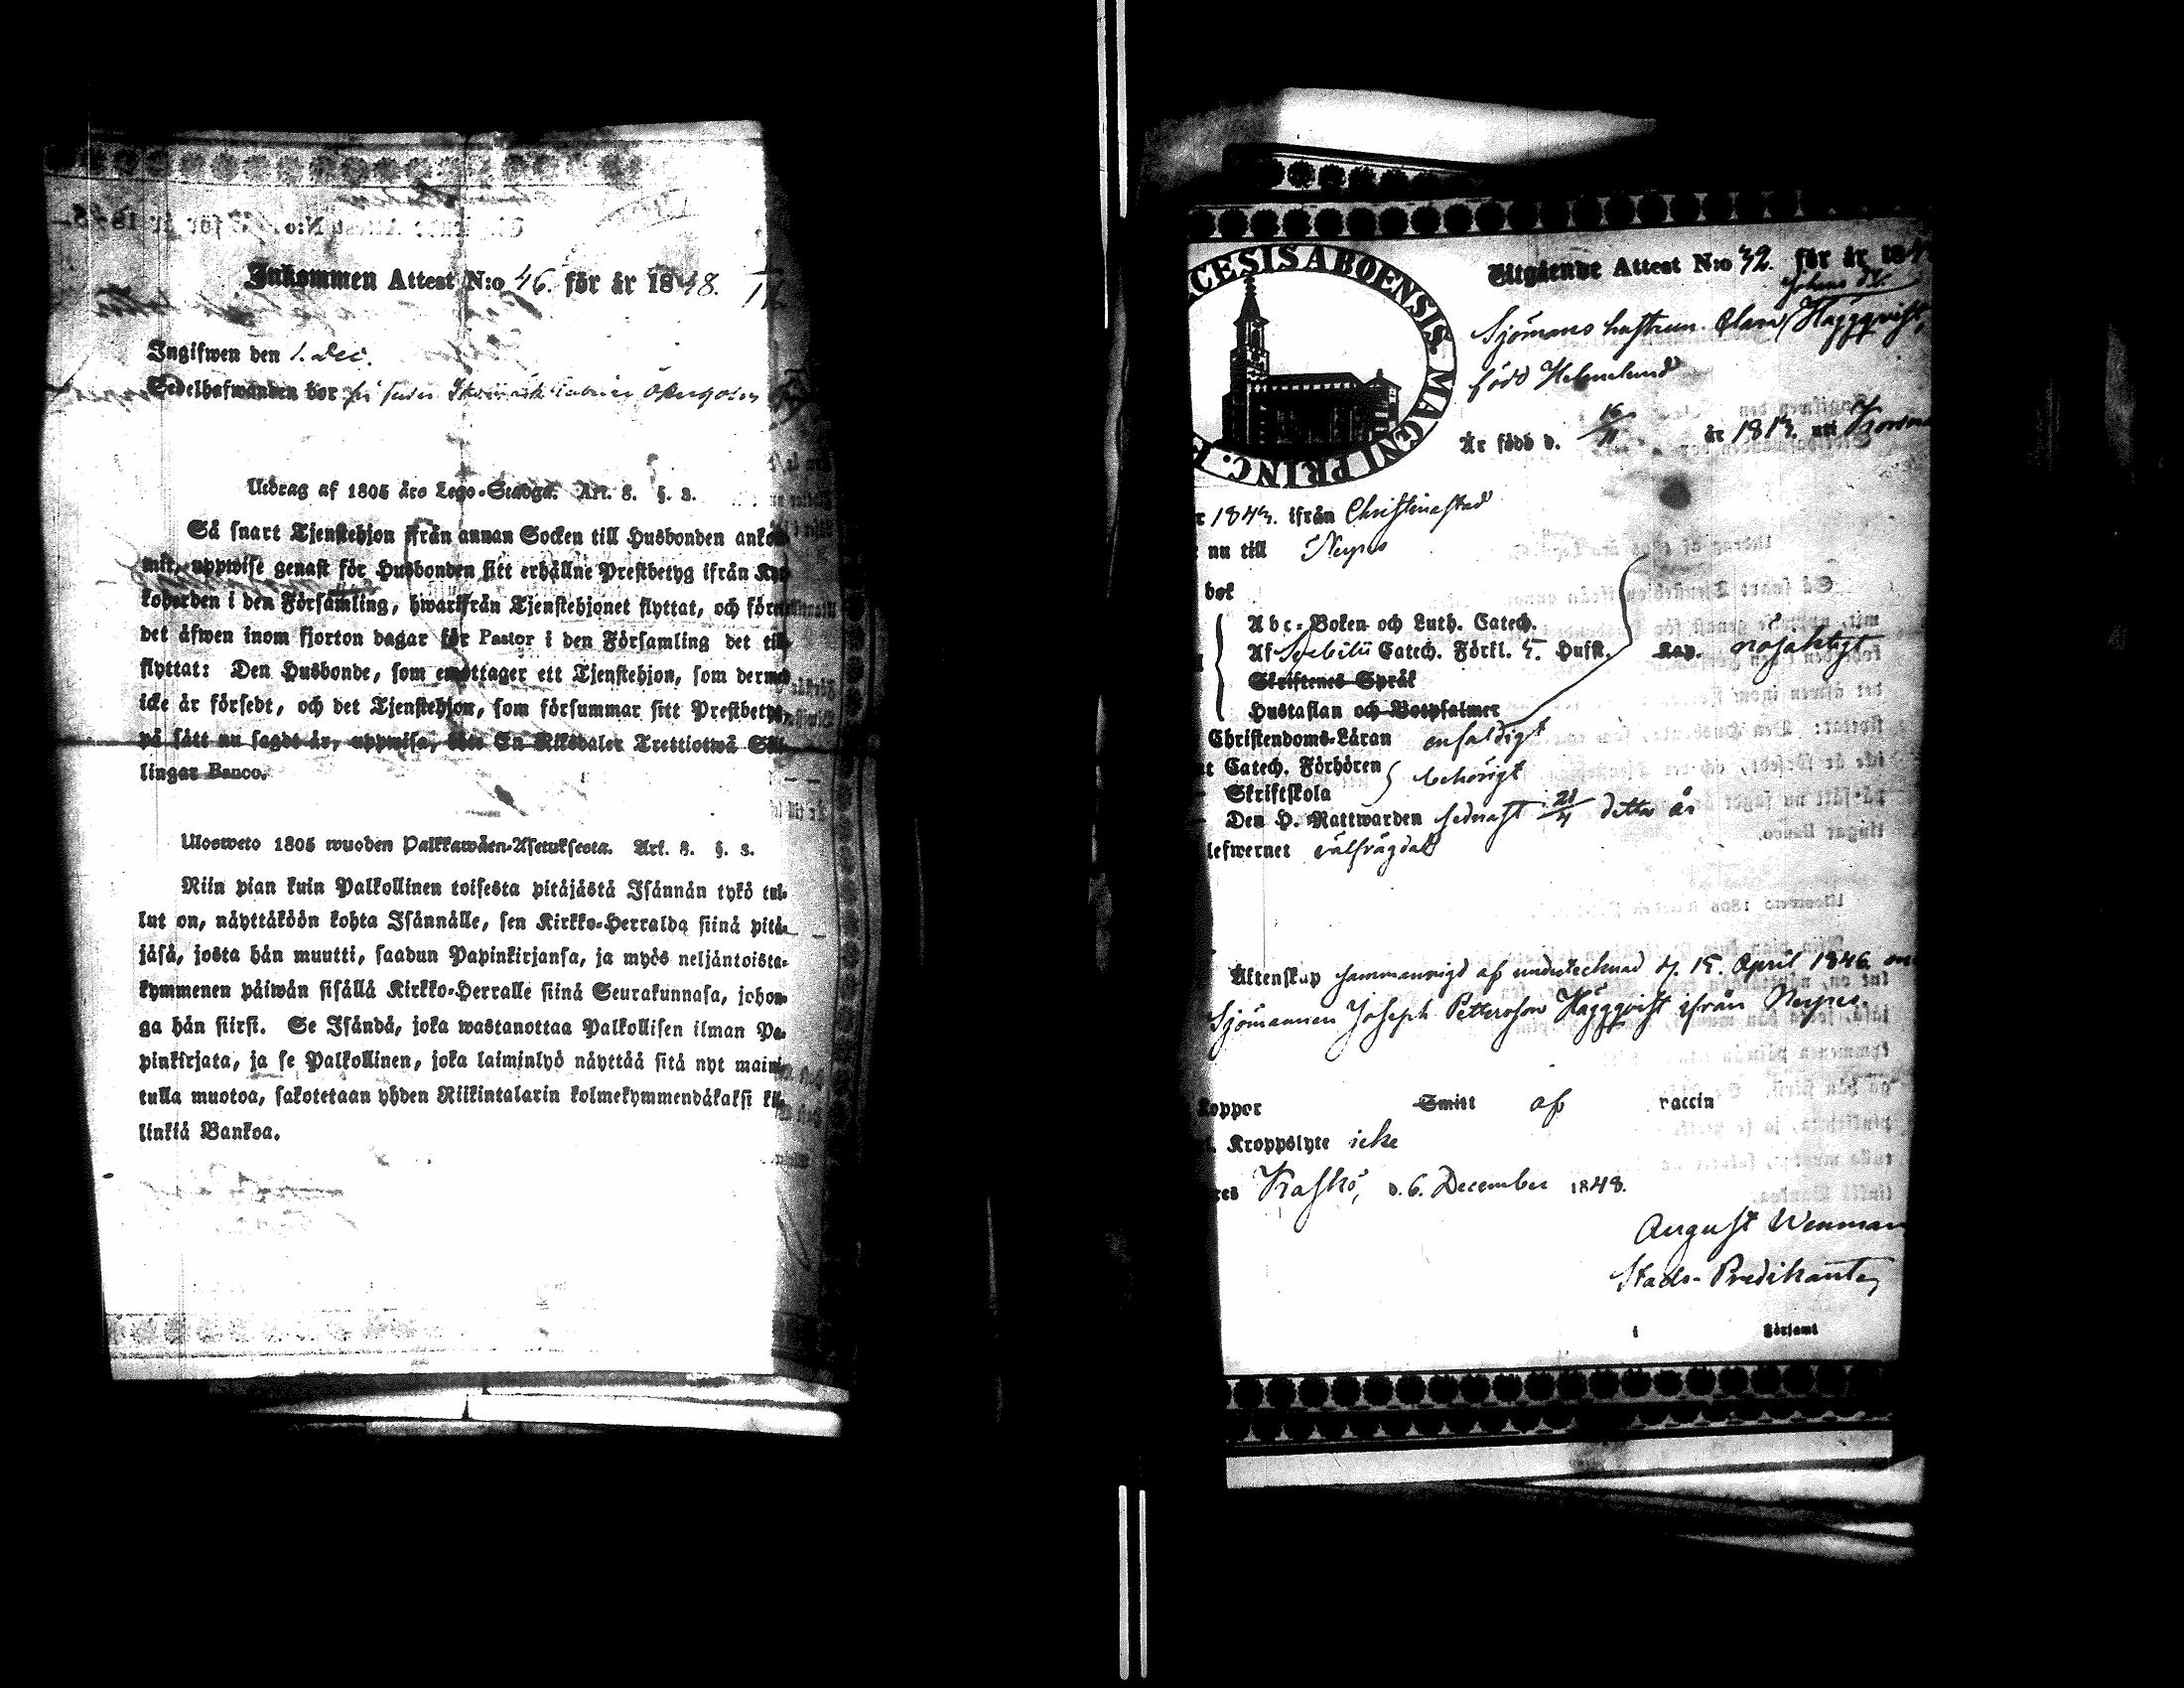 Inkommen Attest N:o 46. för år 1848.
Ingifwen den 1. Dec.
Sedelhafwanden bor
Utdrag af 1805 års Lego-Stadga. Art. 8. §. 3.
Så snart Tjenstehjon ifrån annan Socken till Husbonden ankom-
mit, uppwise genast för Husbonden sitt erhållne Prestbetyg ifrån Kyr-
koherden i den Församling, hwarifrån Tjenstehjonet flyttat, och förete
det äfwen inom fjorton dagar för Pastor i den Församling det till-
flyttat: Den Husbonde, som emottager ett Tjenstehjon, som dermed
icke är försedt, och det Tjenstehjon, som försummar sitt Prestbetyg,
på sätt nu sagdt är, uppwisa, böte En Riksdaler Trettiotwå Skil-
lingar Banco.
Ulosweto 1805 wuoden Palkkawäen-Asetuksesta. Art. 8. §. 3.
Niin pian kuin Palkollinen toisesta pitäjästä Isännän tykö tul-
lut on, näyttäköön kohta Isännälle, sen Kirkko-Herralda siinä pitä-
jäsä, josta hän muutti, saadun Papinkirjansa, ja myös neljäntoista-
kymmenen päiwän sisällä Kirkko-Herralle siinä Seurakunnasa, johon-
ga hän siirsi. Se Isändä, joka wastanottaa Palkollisen ilman Pa-
pinkirjata, ja se Palkollinen, joka laiminlyö näyttää sitä nyt maini-
tulla muotoa, sakotetaan yhden Riikintalarin kolmekymmendäkaksi kil-
linkiä Bankoa.
CESIS ABOENSIS. MAGNI PRINC. F
Utgående Attest N:o 32. för år 184
Sjömans hustrun Clara Häggqvist,
född Holmlund
Är född d. 16/11 år 1813. uti
r 1843. ifrån Christinastad
nu till Nerpes
bok
Abc-Boken och Luth. Catech.
Af Svebilii Catech. Förkl. 5. Hufst. Kap. nöjaktigt
Skriftenes Språk
Hustaflan och Botpsalmer
Christendoms-Läran enfaldigt
t Catech. Förhören behörigt
Skriftskola
Den H. Nattwarden sednast 21/11 detta år
lefwernet välfrägdad
Äktenskap sammanvigd af undertecknad d. 15. April 1846 med
Sjömannen Joseph Pettersson Häggqvist ifrån Nerpes.
koppor Smitt af vaccin
Kroppslyte icke
res Kaskö, d. 6. December 1848.
August Wenman
Stads-Predikant
i Församl